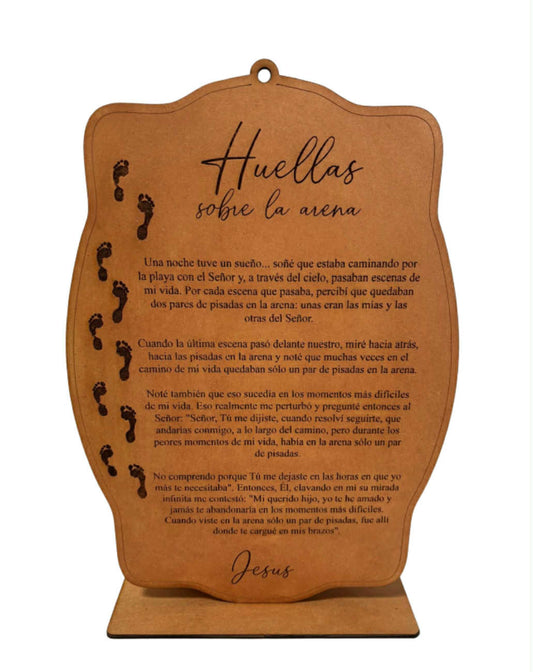 Huellas
sobre la arena
Una noche tuve un sueño... soñé que estaba caminando por
la playa con el Señor y, a través del cielo, pasaban escenas de
mi vida. Por cada escena que pasaba, percibí que quedaban
dos pares de pisadas en la arena: unas eran las mías y las
otras del Señor.
Cuando la última escena pasó delante nuestro, miré hacia atrás,
hacia las pisadas en la arena y noté que muchas veces en el
camino de mi vida quedaban sólo un par de pisadas en la arena.
Noté también que eso sucedía en los momentos más difíciles
de mi vida. Eso realmente me perturbó y pregunté entonces al
Señor: "Señor, Tú me dijiste, cuando resolví seguirte, que
andarías conmigo, a lo largo del camino, pero durante los
peores momentos de mi vida, había en la arena sólo un par
de pisadas.
No comprendo porque Tú me dejaste en las horas en que yo
más te necesitaba". Entonces, Él, clavando en mí su mirada
infinita me contestó: "Mi querido hijo, yo te he amado y
jamás te abandonaría en los momentos más difíciles.
Cuando viste en la arena sólo un par de pisadas, fue allí
donde te cargué en mis brazos".
Jesus